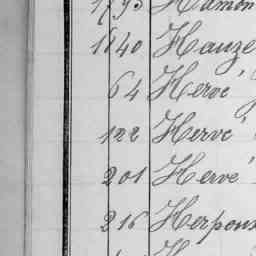 1793 Hamon
1840 Hauze
64 Hervé
122 Hervé
201 Hervé
216 Herpoux